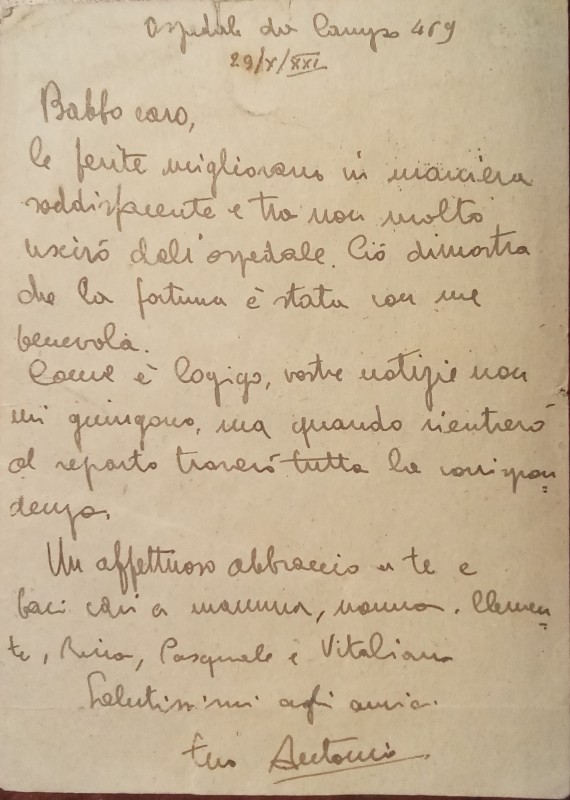 Ospedale da Campo 469
29/X/XXI
Babbo caro,
le ferite migliorano in maniera
soddisfacente e tra non molto
uscirò dall'ospedale. Ciò dimostra
che la fortuna è stata con me
benevola.
Come è logigo, vostre notizie non
mi giungono, ma quando rientrerò
al reparto troverò tutta la corrispon=
denza.
Un affettuoso abbraccio a te e
baci cari a mamma, nonna, Clemen=
te, Pasquale e Vitaliano
Salutissimi agli amici.
tuo Antonio